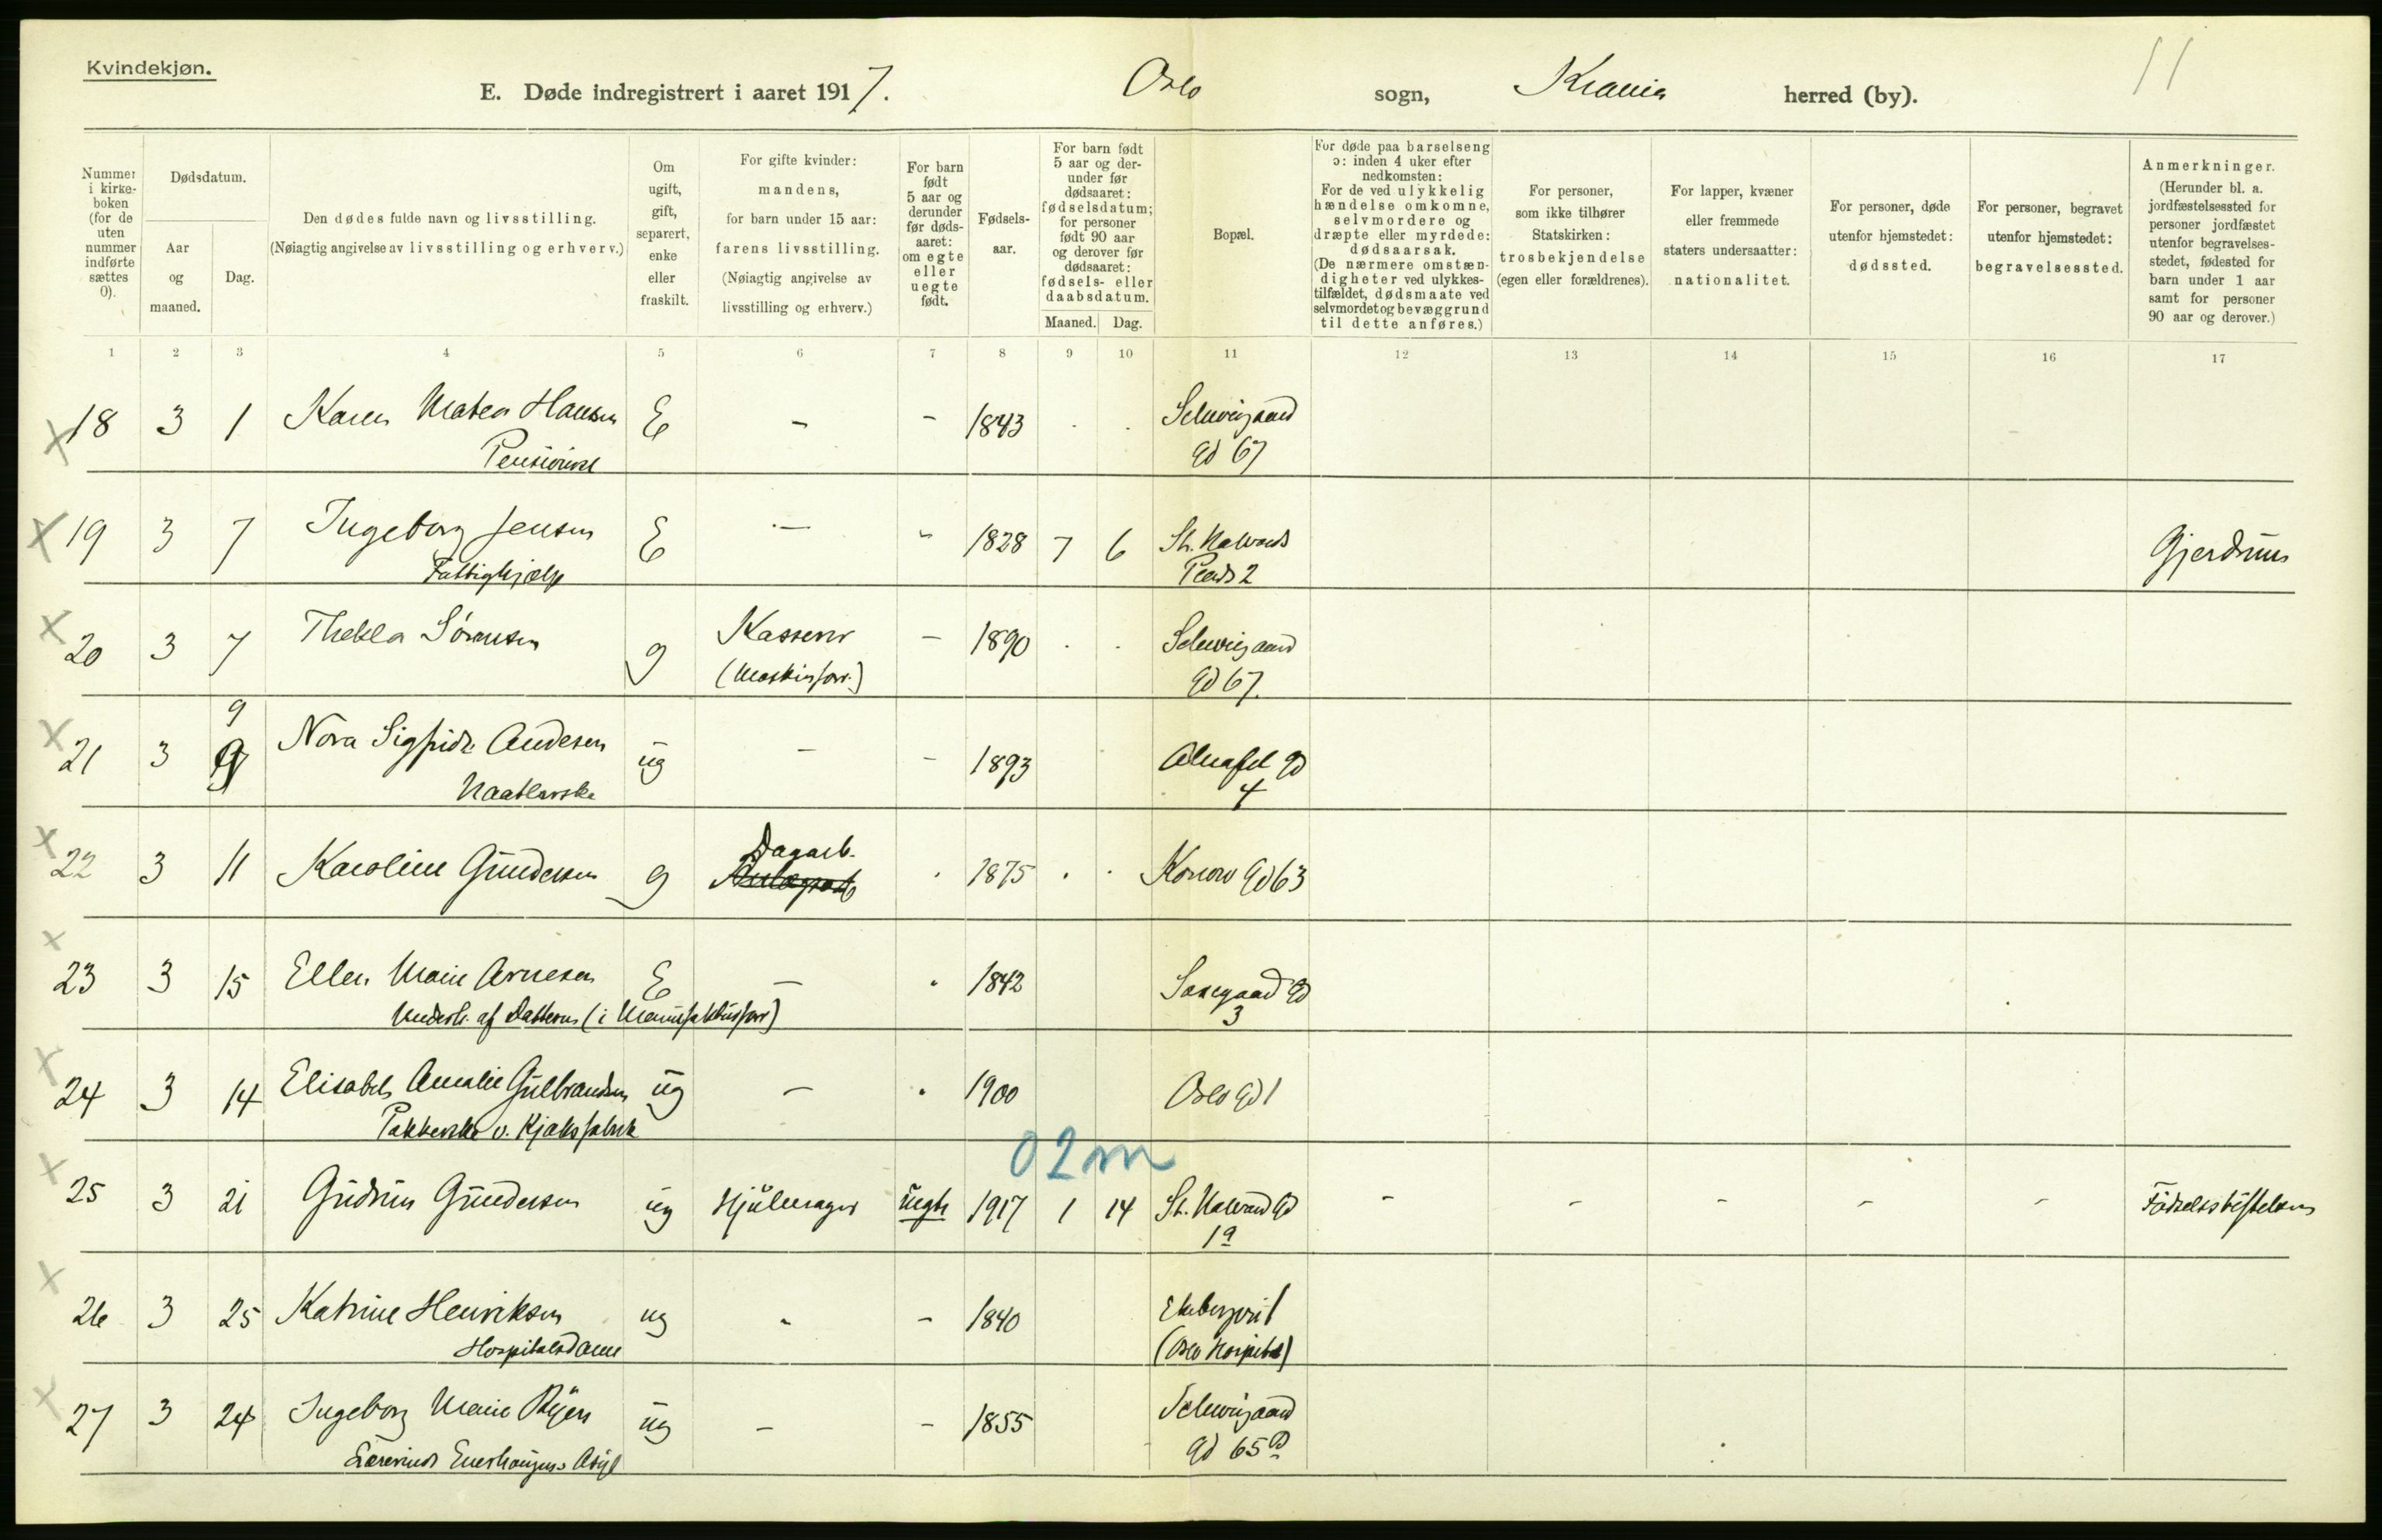 Kvindekjøn.
11
E. Døde indregistrert i aaret 1917. Oslo sogn, Krania herred (by).
Nummer i kirkeboken (for de uten nummer indførte sættes 0).
Dødsdatum.
Aar og maaned.
Dag.
Den dødes fulde navn og livsstilling.
(Nøiagtig angivelse av livsstilling og erhverv.)
Om ugift, gift, separert, enke eller fraskilt.
For gifte kvinder: mandens, for barn under 15 aar: farens livsstilling. (Nøiagtig angivelse av livsstilling og erhverv.)
For barn født 5 aar og derunder før dødsaaret: om egte eller uegte født.
Fødselsaar.
For barn født 5 aar og derunder før dødsaaret: fødselsdatum; for personer født 90 aar og derover før dødsaaret: fødsels- eller daabsdatum.
Maaned. Dag.
Bopæl.
For døde paa barselseng ɔ: inden 4 uker efter nedkomsten: For de ved ulykkelig hændelse omkomne, selvmordere og dræpte eller myrdede: dødsaarsak. (De nærmere omstændigheter ved ulykkestilfældet, dødsmaate ved selvmordet og bevæggrund til dette anføres.)
For personer, som ikke tilhører Statskirken: trosbekjendelse (egen eller forældrenes).
For lapper, kvæner eller fremmede staters undersaatter: nationalitet.
For personer, døde utenfor hjemstedet: dødssted.
For personer, begravet utenfor hjemstedet: begravelsessted.
Anmerkninger. (Herunder bl. a. jordfæstelsessted for personer jordfæstet utenfor begravelsesstedet, fødested for barn under 1 aar samt for personer 90 aar og derover.)
1 2 3 4 5 6 7 8 9 10 11 12 13 14 15 16 17
18 3 1 Karen Matea Hansen E - - 1843 Schweigaard
Pensionist Gd 67
19 3 7 Ingeborg Jensen E - - 1828 7 6 St. Halvards Gjerdrum
Fattighjælp Plads 2
20 3 7 Thekla Sørensen g Kasserer - 1890 Schweigaard
(Maskinforr.) Gd 67.
9
21 3 9 Nora Sigfride Andesen ug - - 1893 Alnafet Gd
4
Dagarb.
22 3 11 Karoline Gundersen g 1875 Konow Gd 63
23 3 15 Ellen Marie Arnesen E - 1842 Saxegaard Gd
Underh. af Datteren (i Manufakturforr) 3
24 3 14 Elisabeth Amalie Gulbrandsen ug - 1900 Oslo Gd 1
Pakkerske v. Kjæksfabrik
02m
25 3 21 Gudrun Gundersen ug Hjulmager uegte 1917 1 14 St. Halvard Gd - - - - - Fødselsstiftelsen
1a
26 3 25 Katrine Henriksen ug - - 1840 Ekebergvei 1
Hospitalsdame (Oslo Hospital)
27 3 24 Ingeborg Marie Ryen ug - - 1855 Schweigaard
Lærerinde Enerhaugens Asyl Gd 65 B